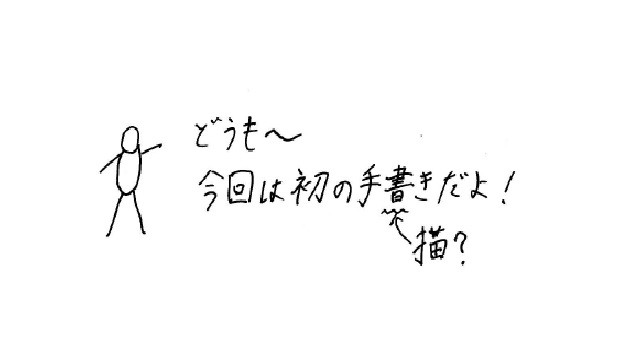 どうも～
今回は初の手書きだよ！
描？